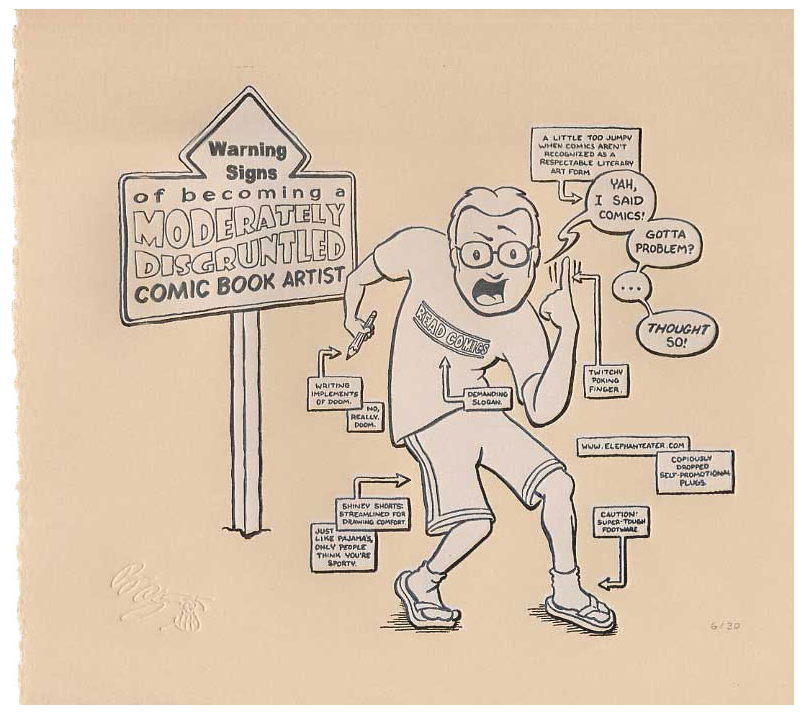 Warning
Signs
of becoming a
MODERATELY
DISGRUNTLED
COMIC BOOK ARTIST
A LITTLE TOO JUMPY
WHEN COMICS AREN'T
RECOGNIZED AS A
RESPECTABLE LITERARY
ART FORM
YAH,
I SAID
COMICS!
GOTTA
PROBLEM?
...
THOUGHT
SO!
READ COMICS
TWITCHY
POKING
FINGER.
WRITING
IMPLEMENTS
OF DOOM.
NO,
REALLY.
DOOM.
DEMANDING
SLOGAN.
WWW.ELEPHANTEATER.COM
COPIOUSLY
DROPPED
SELF-PROMOTIONAL
PLUGS.
SHINEY SHORTS:
STREAMLINED FOR
DRAWING COMFORT.
JUST
LIKE PAJAMAS,
ONLY PEOPLE
THINK YOU'RE
SPORTY.
CAUTION:
SUPER-TOUGH
FOOTWARE.
6/30